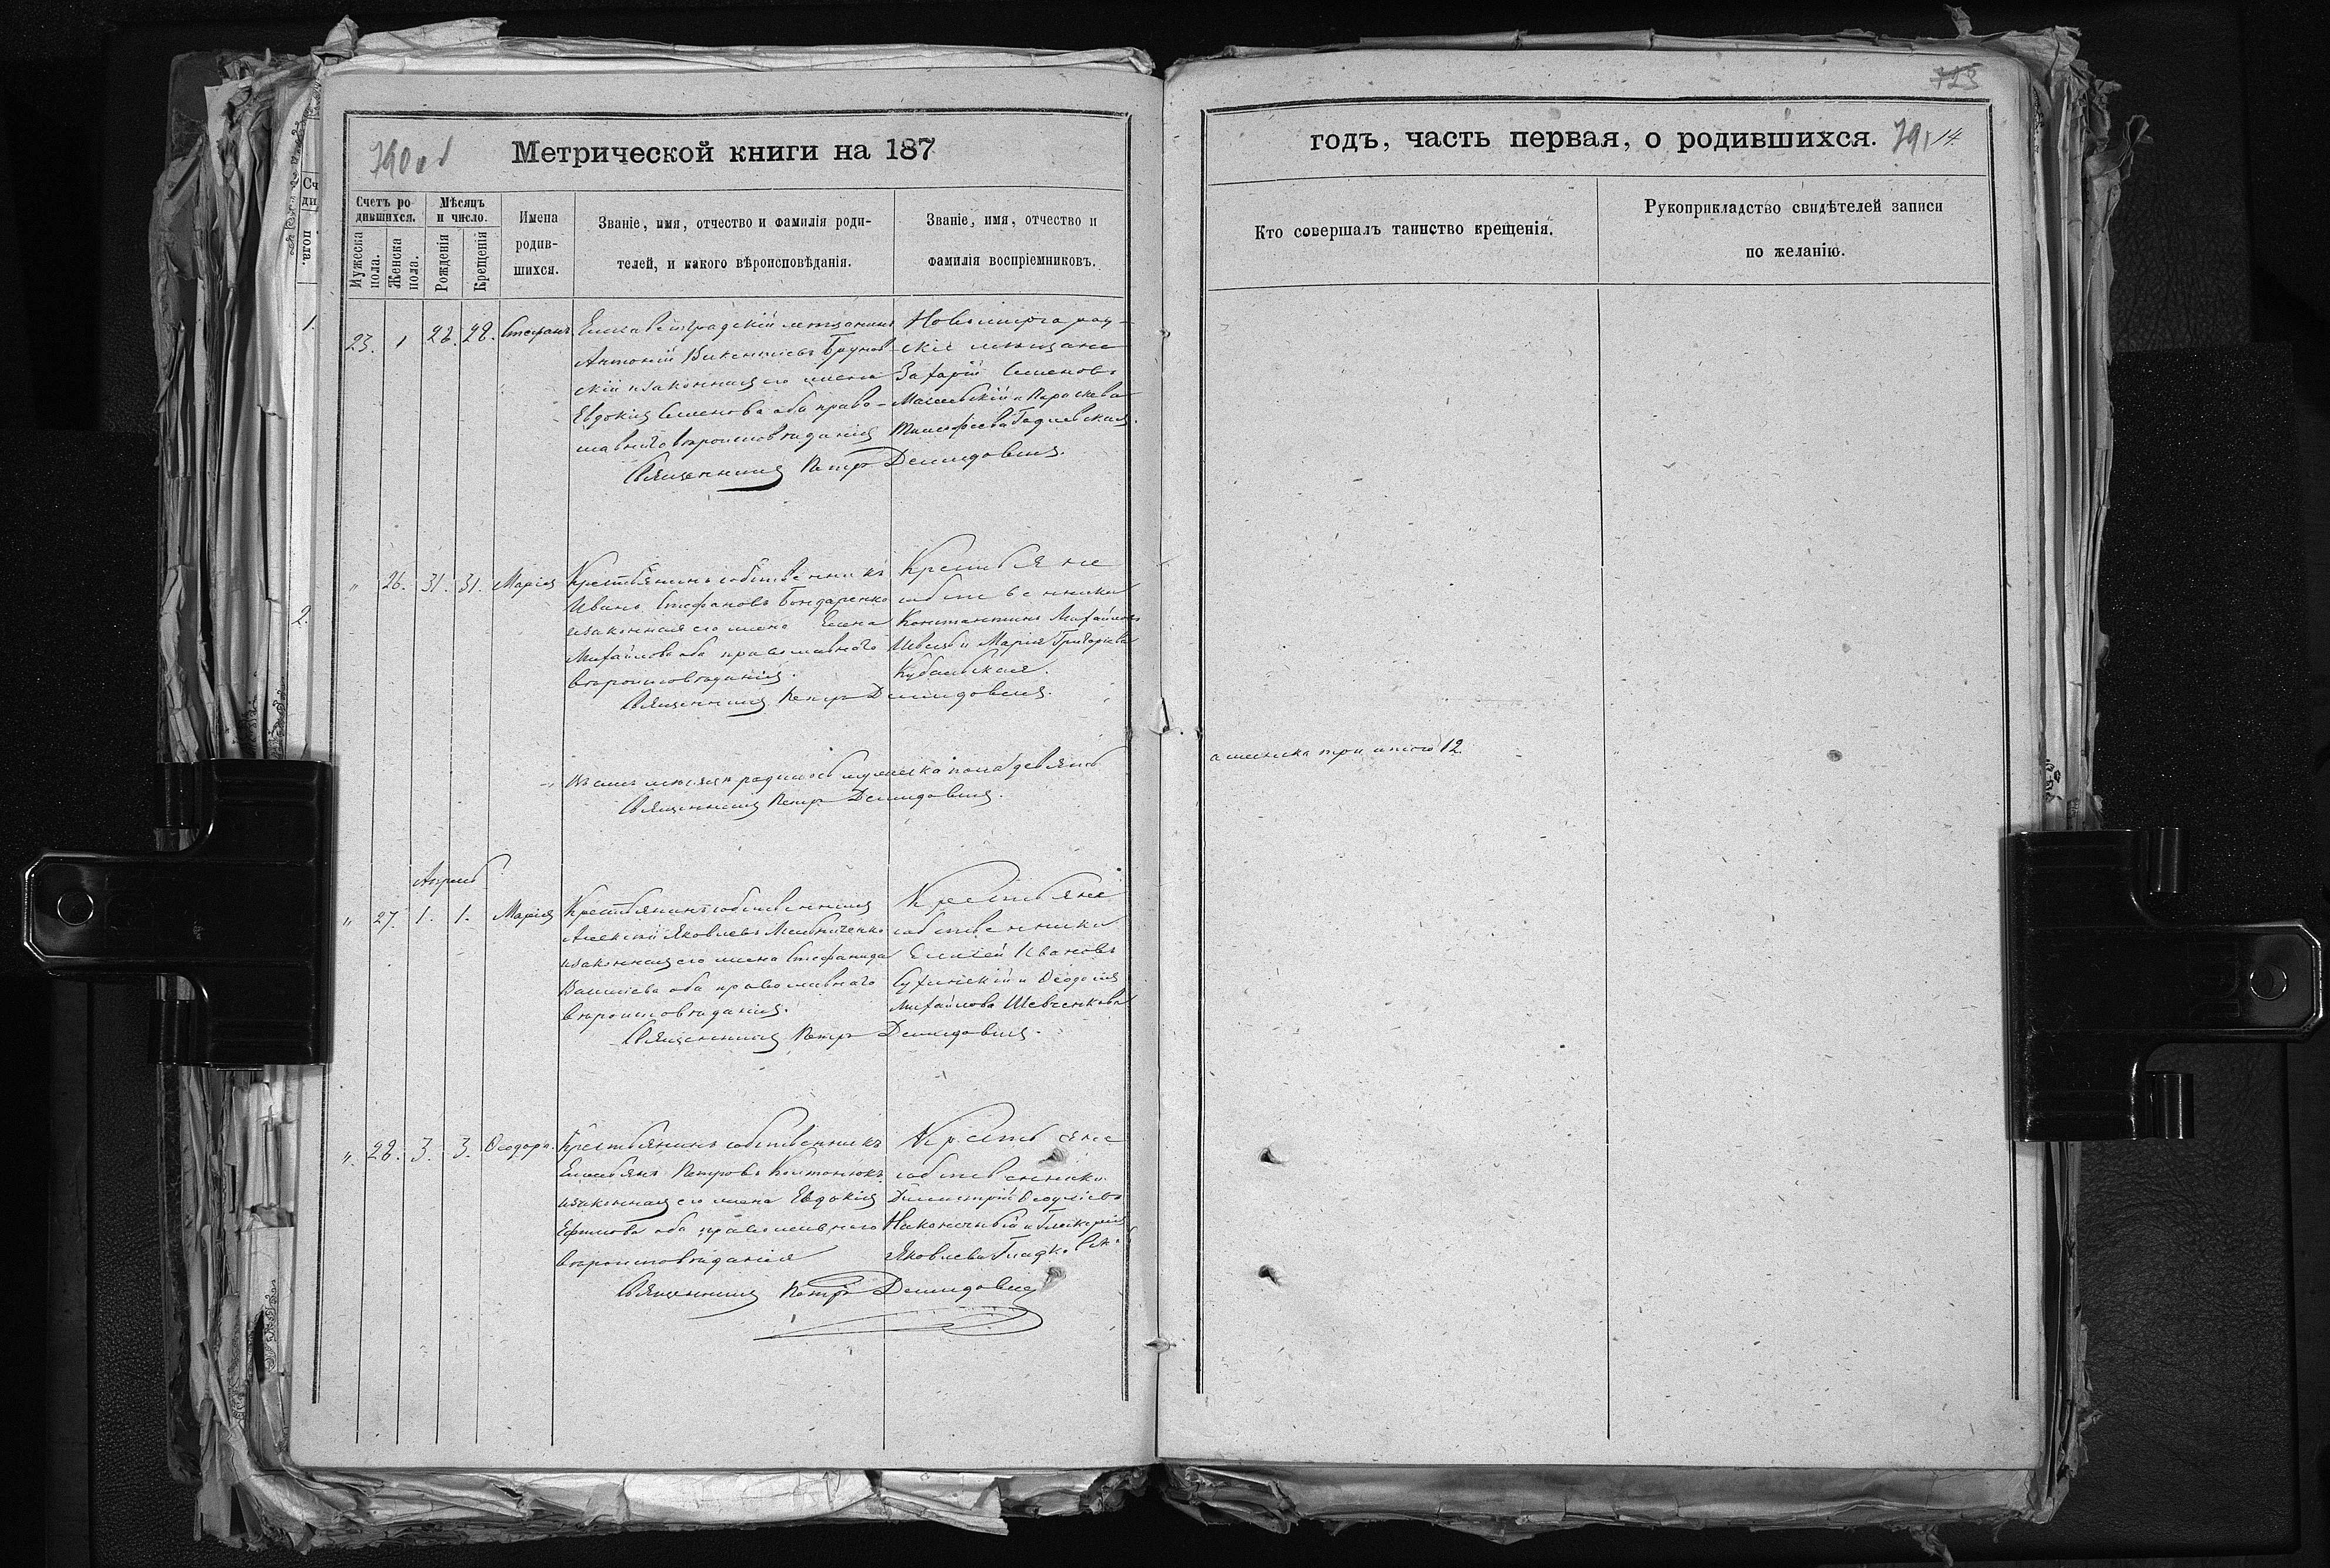 790 об
Метрической книги на 187
Счетъ ро-
дившихся.
Мѣсяцъ
и число.
Мужеска
пола.
Женска
пола.
Рожденія
Крещенія
Имена
родив-
шихся.
Званіе, имя, отчество и фамилія роди-
телей, и какого вѣроисповѣданія.
Званіе, имя, отчество и
фамилія воспріемниковъ.
23. 28. 28. Стефанъ
Елисаветградскій мѣщанинъ
Антоній Викентіевъ
скій и законная его жена
Евдокія Семенова оба право-
славнаго вѣроисповѣданія
скіе мѣщане
Захарій Семеновъ
и Параскева
Тимофеева
Священникъ Петръ Демидовичъ.
" 26. 31. 31. Марія
Крестьянинъ собственникъ
Иванъ Стефановъ Бондаренко
и законная его жена Елена
Михайлова оба православнаго
вѣроисповѣданія.
Крестьяне
собственники
Константинъ Михайловъ
Швецъ и Марія Григорьева
Священникъ Петръ Демидовичъ.
Въ семъ мѣсяцѣ родилось мужеска пола девять
Священникъ Петръ Демидовичъ.
Апрель
" 27. 1. 1. Марія
Крестьянинъ собственникъ
Алексій Яковлевъ Мельниченко
и законная его жена Стефанида
Василіева оба православнаго
вѣроисповѣданія.
Крестьяне
собственники
Елисей Ивановъ
и Ѳеодосія
Михайлова Шевченкова
Священникъ Петръ Демидовичъ.
" 28. 3. 3. Ѳеодора.
Крестьянинъ собственникъ
Емельянъ Петровъ
и законная его жена Евдокія
Ефимова оба православнаго
вѣроисповѣданія
Крестьяне
собственники
Димитрій
Наконечный и Гликерія
Яковлева
Священникъ Петръ Демидовичъ
годъ, часть первая, о родившихся.
791 14.
Кто совершалъ таинство крещенія.
Рукоприкладство свидѣтелей записи
по желанію.
а женска три, итого 12.